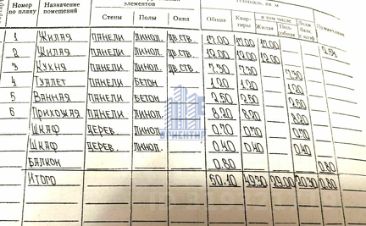 Номер по плану Назначение помещений Стены Полы Окна Общая
1 Жилая панели линол. дв.ств. 17.00 17.00 17.00
2 Жилая панели линол. дв.ств. 12.00 12.00 12.00
3 Кухня панели линол. дв.ств. 7.30 7.30 7.30
4 Туалет панели бетон 1.20 1.20 1.20
5 Ванная панели бетон 2.50 2.50 2.50
6 Прихожая панели линол. 8.20 8.20 8.20
Шкаф дерев. линол. 0.70 0.70 0.70
Шкаф дерев. линол. 0.40 0.40 0.40
Балкон 0.80 0.80
Итого 29.00 20.30 0.80